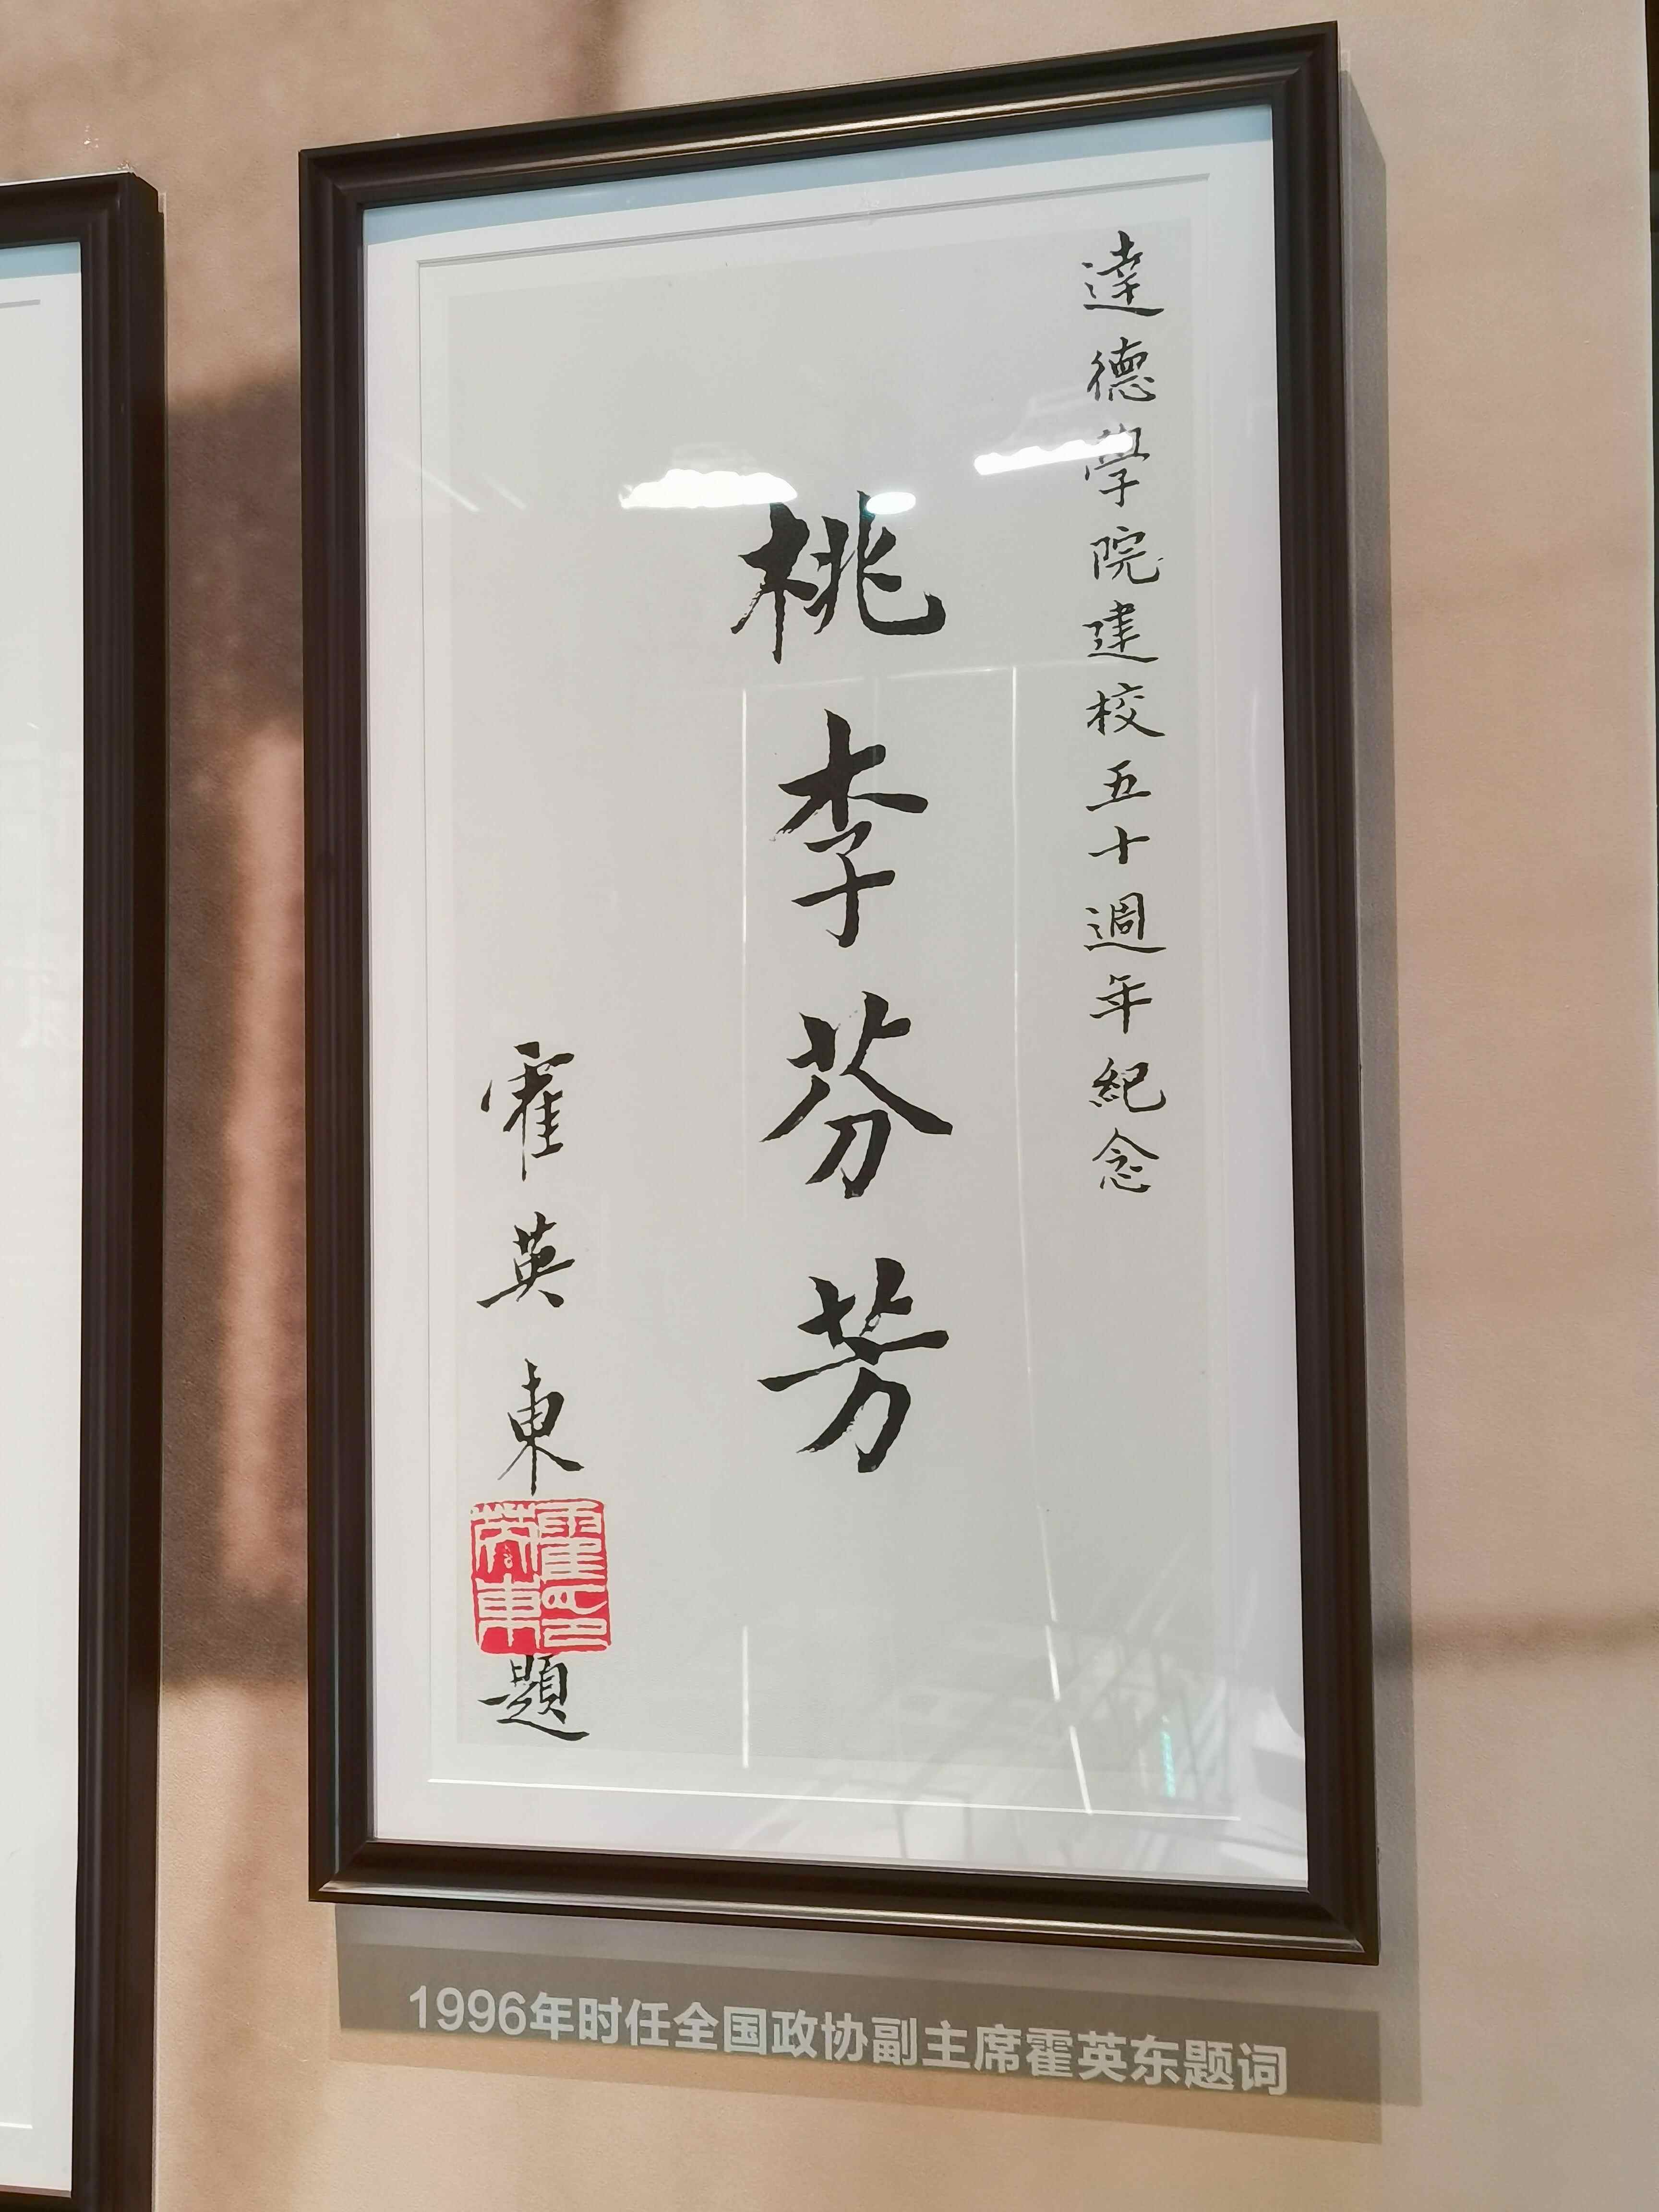 達德學院建校五十週年紀念
桃李芬芳
霍英東題
霍英東印
1996年时任全国政协副主席霍英东题词